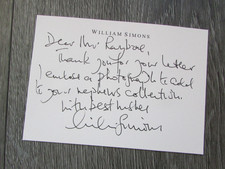 WILLIAM SIMONS
Dear Mr.
Thank you for your letter
I enclose a photograph to add
to your nephews collection.
With best wishes
William Simons